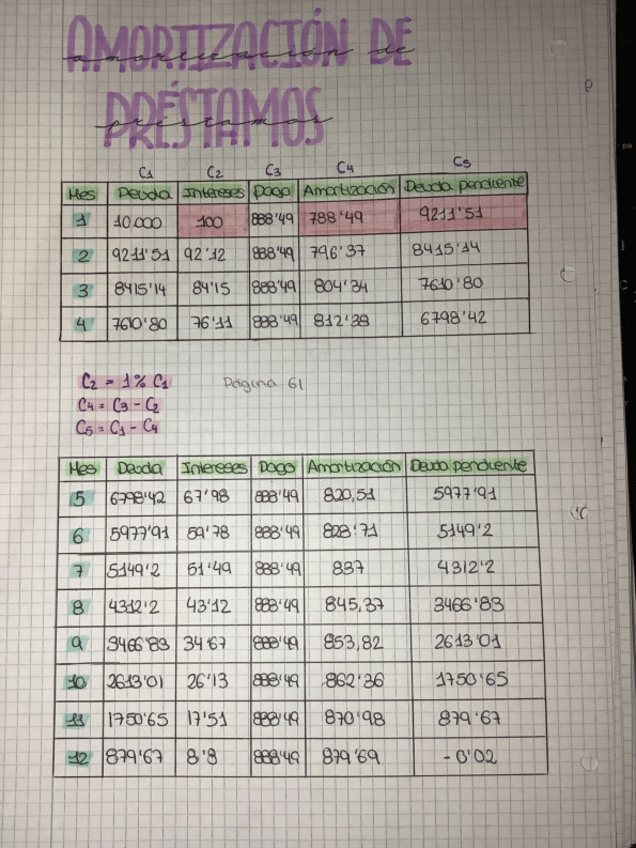 AMORTIZACIÓN DE
amortización de
PRÉSTAMOS
préstamos
C1 C2 C3 C4 C5
Mes Deuda Intereses Pago Amortización Deuda pendiente
1 10.000 100 888'49 788'49 9211'51
2 9211'51 92'12 888'49 796'37 8415'14
3 8415'14 84'15 888'49 804'34 7610'80
4 7610'80 76'11 888'49 812'38 6798'42
C2 = 1% C1 Página 61
C4 = C3 - C2
C5 = C1 - C4
Mes Deuda Intereses Pago Amortización Deuda pendiente
5 6798'42 67'98 888'49 820,51 5977'91
6 5977'91 59'78 888'49 828'71 5149'2
7 5149'2 51'49 888'49 837 4312'2
8 4312'2 43'12 888'49 845,37 3466'83
9 3466'83 34'67 888'49 853,82 2613'01
10 2613'01 26'13 888'49 862'36 1750'65
11 1750'65 17'51 888'49 870'98 879'67
12 879'67 8'8 888'49 879'69 -0'02